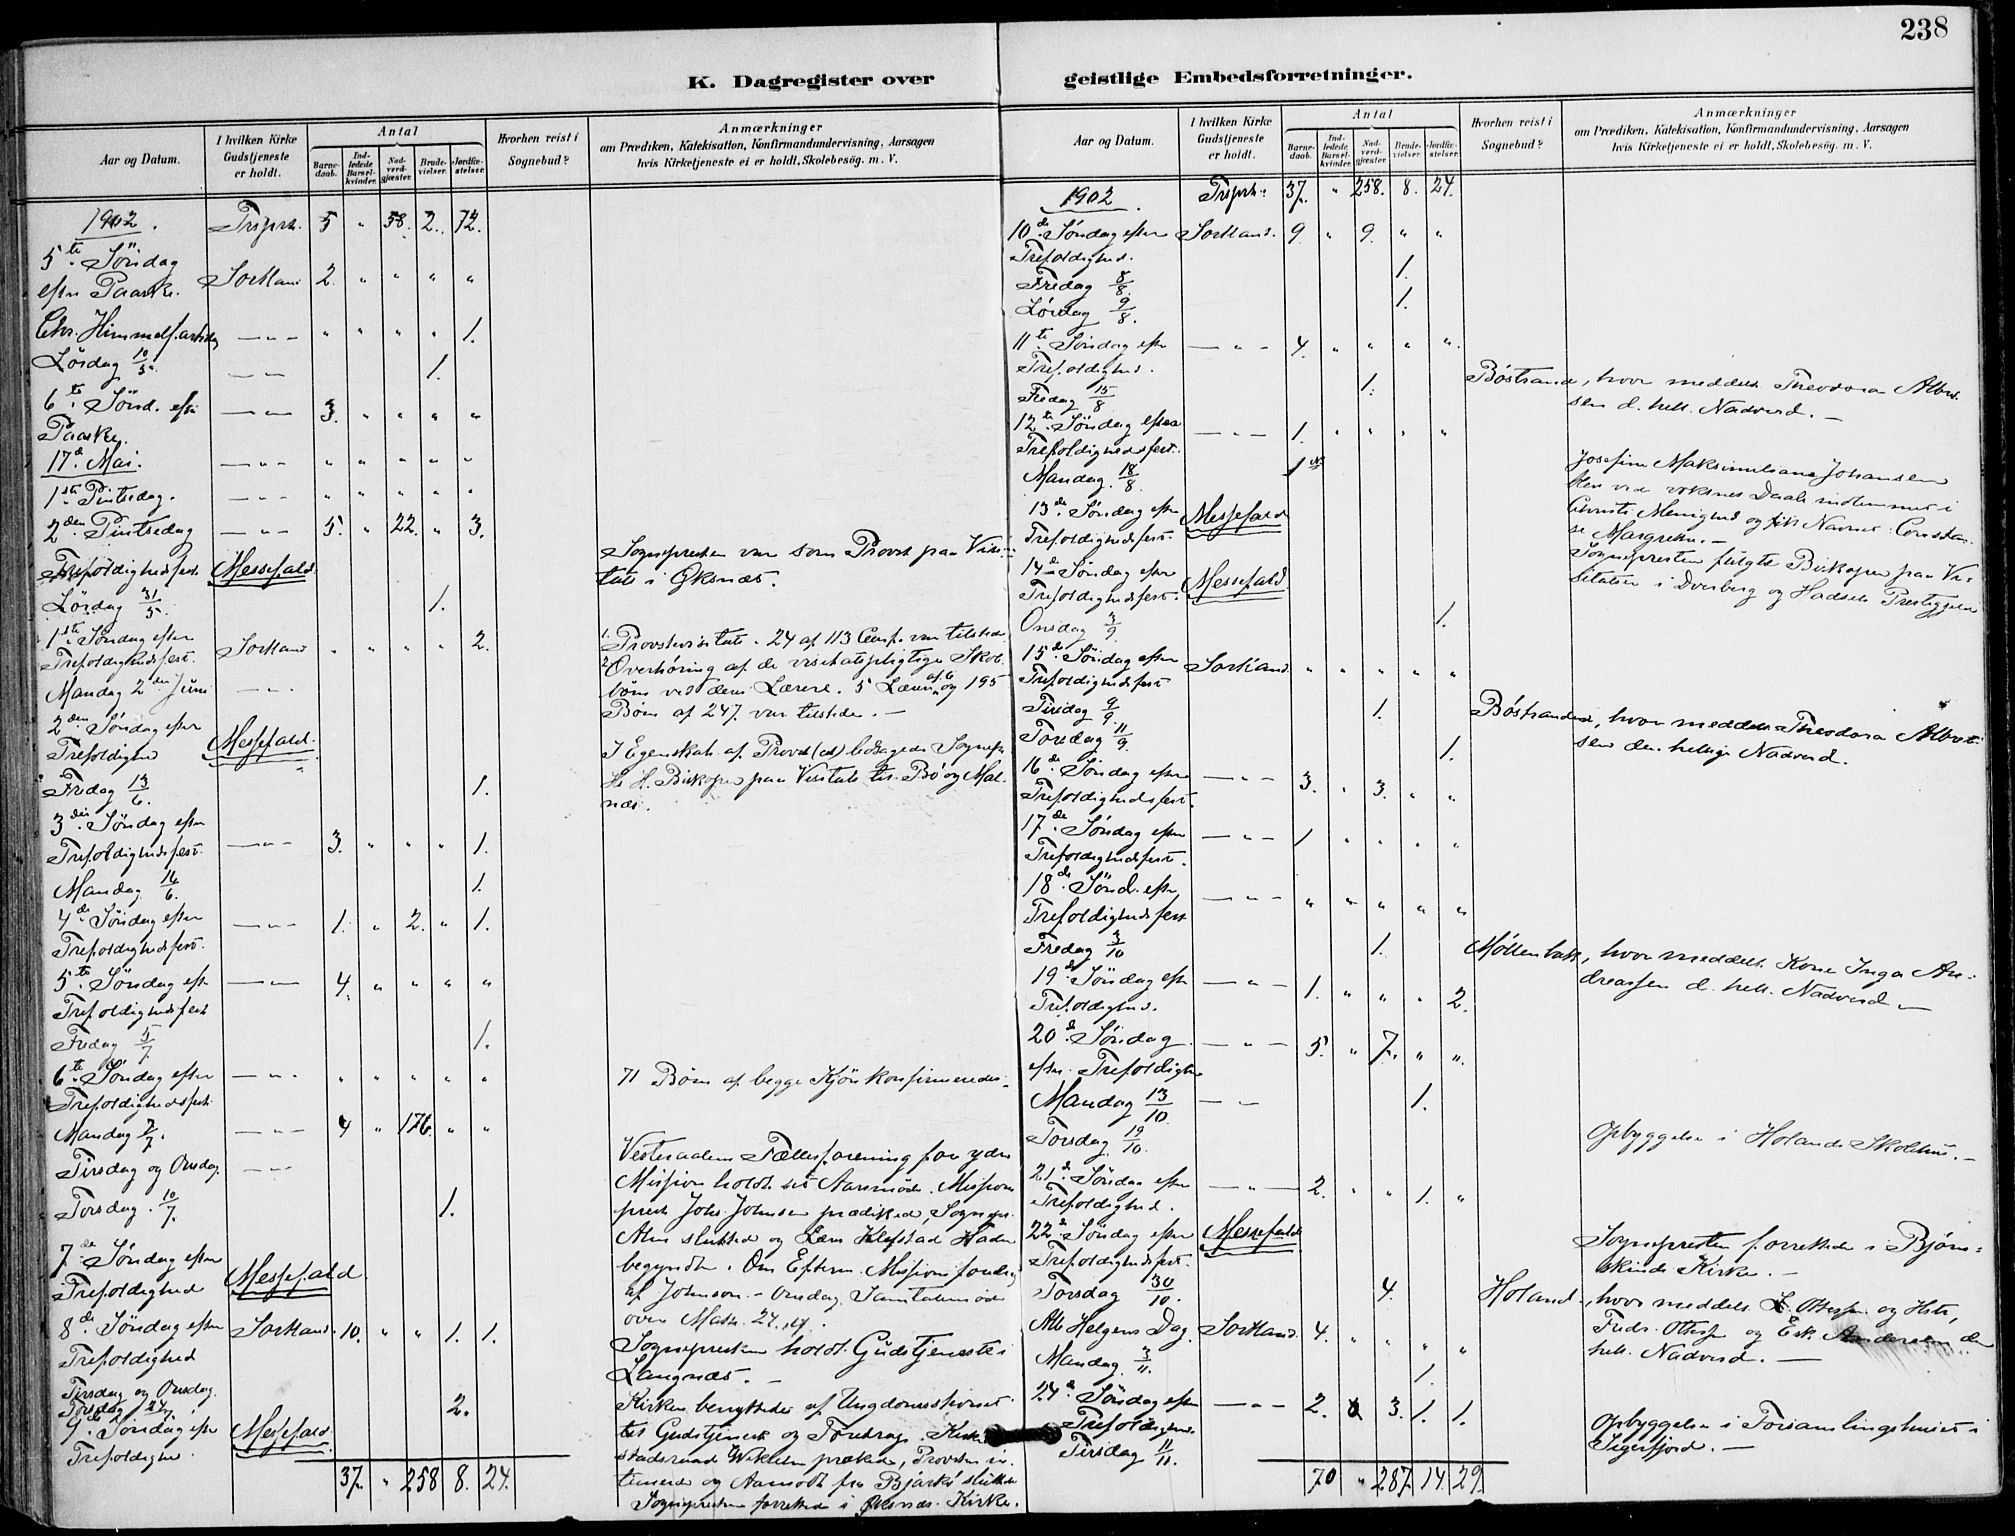 238
K. Dagregister over
Aar og Datum.
I hvilken Kirke Gudstjeneste er holdt.
Antal
Barnedaab.
Indledede Barselkvinder.
Nadverdgjæster.
Brudevielser.
Jordfæstelser.
Hvorhen reist i Sognebud?
Anmærkninger
om Prædiken, Katekisation, Konfirmandundervisning, Aarsagen
hvis Kirketjeneste ei er holdt, Skolebesög. m. V.
1902. Trsprt. 5 " 58. 2. 12.
5te Söndag
efter Paaske. Sortland 2. " " " "
Chr. Himmelfartsdag — " — " " " " 1.
Lördag 10/5. — " — 1.
6te Sönd. efter — " — 3. " " " "
Paaske.
17de Mai. — " — " " " " "
1ste Pintsedag. — " — " " " " "
2den Pintsedag — " — 5. " 22. " 3.
Trefoldighedsfest. Messefald. Sognepresten var som Provst paa Visi-
tats i Øksnæs.
Lördag 31/5. 1.
1ste Söndag efter
Trefoldighedsfest. Sortland " " " " 2. 1. Provstevisitats. 24 af 113 Conf. var tilstede.
2. Overhöring af de visitatspligtige Skole-
Mandag 2den Juni — " — börn ved deres Lærere. 5 Lærere af 6 og 195
Börn af 247 var tilstede. —
2den Söndag efter
Trefoldighed Messefald. I Egenskab af Provst (cst) ledsagede Sognepr.
Hr. H. Biskopen paa Visitats til Bö og Mal-
næs.
Fredag 13/6. 1.
3die Söndag efter
Trefoldighedsfest. — " — 3. " " " 1.
Mandag 16/6. 1.
4de Söndag efter — " — 1. " 2. " 1.
Trefoldighedsfest.
5te Söndag eft. — " — 4. " " " "
Trefoldighedsfest
Fredag 5/7. 1.
6te Söndag efter — " — " " " " " 71 Börn af begge Kjön konfirmeredes.
Trefoldighedsfest.
Mandag 7/7. — " — 4 " 176. " "
Tirsdag og Onsdag. — " — Vesteraalens Fællesforening for ydre
Mission holdt sit Aarsmöde. Missions-
Torsdag 10/7. 1. prest Johs. Johnson prædikede, Sognepr.
Alme sluttede og Lærer Klefstad Hadsel
7de Söndag efter
Trefoldighed Messefald begyndte. Om Efterm. Missionsforedrag
af Johnson. — Onsdag Samtalemöde
over Math. 24, 14.
8de Söndag efter Sortland. 10. " " 1. 1. Sognepresten holdt Gudstjeneste i
Trefoldighed Langnæs. —
Tirsdag og Onsdag. Kirken benyttedes af Ungdomsstævnet
Torsdag 24/7. 2.
9de Söndag efter Messefald. til Gudstjeneste og Foredrag.
Trefoldighed.
Wikelsen prækede, Provsten
og Aamodt fra Bjarkö sluttede
37. " 258 8. 24. Sognepresten forrettede i Øksnæs Kirke.
geistlige Embedsforretninger.
Aar og Datum.
I hvilken Kirke Gudstjeneste er holdt.
Antal
Barnedaab.
Indledede Barselkvinder.
Nadverdgjæster.
Brudevielser.
Jordfæstelser.
Hvorhen reist i Sognebud?
Anmærkninger
om Prædiken, Katekisation, Konfirmandundervisning, Aarsagen
hvis Kirketjeneste ei er holdt, Skolebesög. m. V.
1902. Trsprt. 37. " 258. 8. 24.
10de Söndag efter Sortland. 9 " 9. " "
Trefoldighed.
Fredag 8/8. 1.
Lördag 9/8. 1.
11te Söndag efter — " — 4. " " " "
Trefoldighed.
Fredag 15/8 1. Böstrand, hvor meddelt Theodora Albert-
sen d. hell. Nadverd. —
12te Söndag efter — " — 1. " " " "
Trefoldighedsfest.
Mandag 18/8 1 Josefine Maksimiliane Johansen
blev ved voksnes Daab indlemmet i
Christi Menighed og fik Navnet Constan-
se Margrethe. —
13de Söndag efter Messefald
Trefoldighedsfest. Sognepresten fulgte Biskopen paa Vi-
sitatser i Dverberg og Hadsels Prestegjeld
14de Söndag efter Messefald
Trefoldighedsfest.
Onsdag 3/9. 1.
15de Söndag efter Sortland. " " " " "
Trefoldighedsfest
Tirsdag 9/9. 1. Böstrand, hvor meddelt Theodora Albert-
sen den hellige Nadverd.
Torsdag 11/9. 1.
16de Söndag efter — " — 3. " 3. " "
Trefoldighedsfest.
17de Söndag efter — " — 1 " " " "
Trefoldighedsfest.
18de Sönd. efter — " — " " " " "
Trefoldighedsfest
Fredag 3/10 1. Möllenbakk, hvor meddelt Kone Inga An-
dreassen d. hell. Nadverd —
19de Söndag eft. — " — 1. " " " 2.
Trefoldighed.
20de Söndag — " — 5. " 7. " "
efter Trefoldighed
Mandag 13/10. — " — 1.
Torsdag /10. Opbyggelse i Holands Skolehus. —
21de Söndag efter — " — 2. " " 1. "
Trefoldighed.
22de Söndag efter Messefald Sognepresten forrettede i Bjørn-
Trefoldighedsfest. skinds Kirke. —
Torsdag 30/10. 4. Holand, hvor meddelt L. Ottessen og Hstr,
Fredr. Ottessen og Andersen den
hell. Nadverd. —
Alle Helgens Dag. Sortland. 4. " " " "
Mandag 3/11. 1.
24de Söndag efter — " — 2. 3. 1. 1.
Trefoldighed
Tirsdag 11/11. Opbyggelse i Forsamlingshuset i
Sigerfjord. —
70 " 287 14. 29.